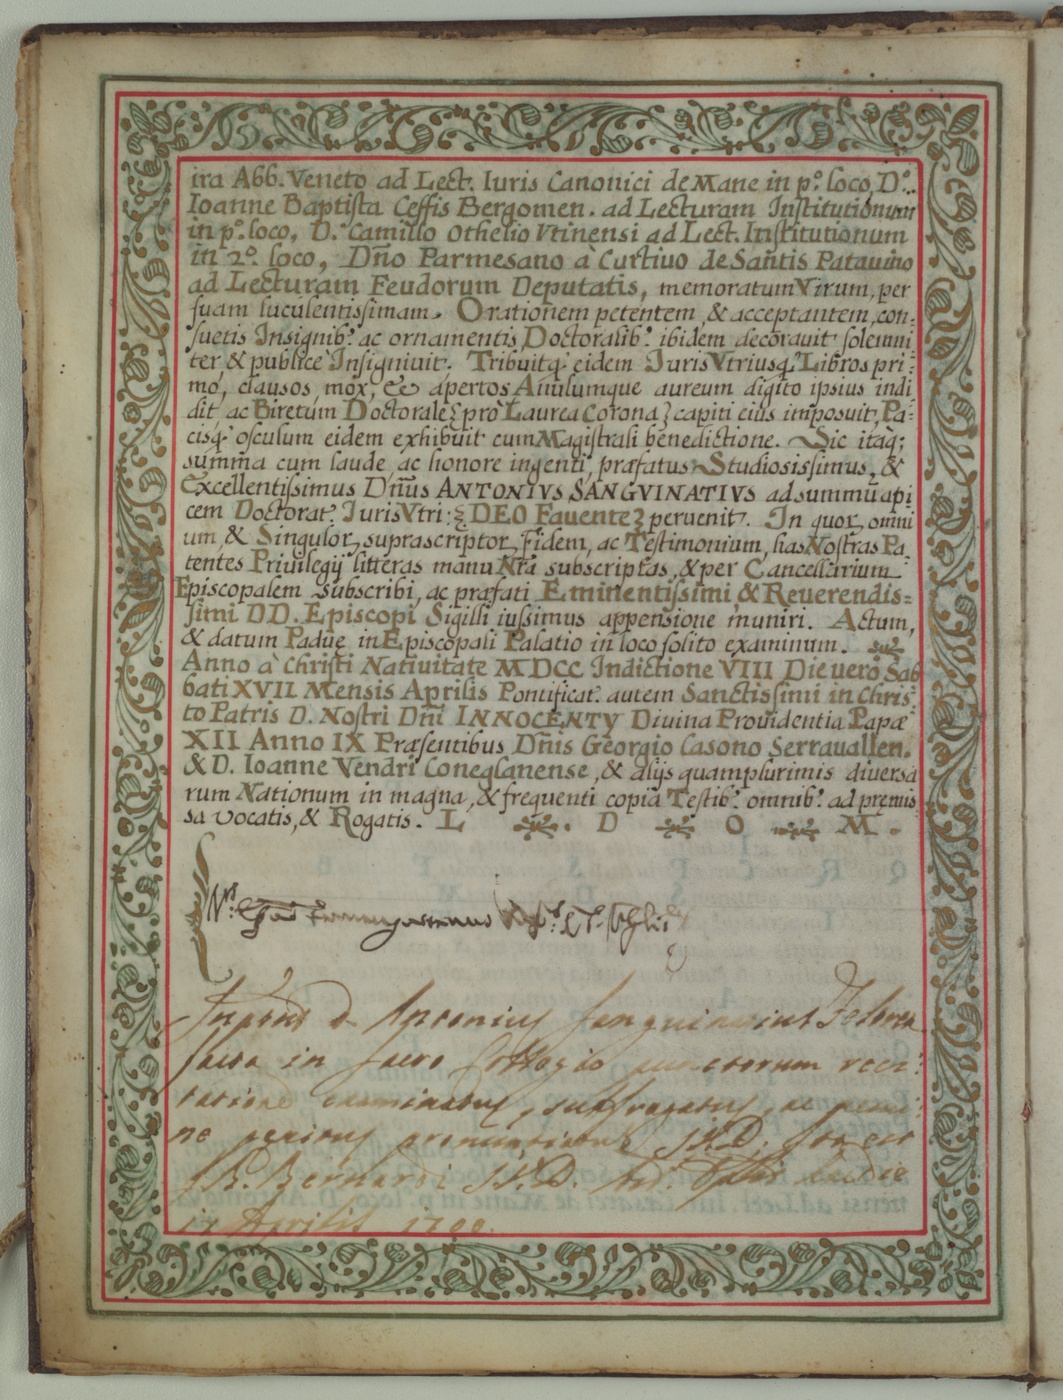 ira Abb. Veneto ad Lect. Iuris Canonici de Mane in p.º loco, D.º
Ioanne Baptista Ceffis Bergomen. ad Lecturam Institutionum
in p.º loco, D.º Camillo Othelio Vtinensi ad Lect. Institutionum
in 2.º loco, Dño Parmesano à Curtiuo de Sañtis Patauino
ad Lecturam Feudorum Deputatis, memoratum Virum, per
suam luculentissimam Orationem petentem, & acceptantem, con-
suetis Insignib.' ac ornamentis Doctoralib.' ibidem decorauit solemni
ter & publice Insigniuit. Tribuitq.' eidem Iuris Vtriusq.' Libros pri-
mo, clausos, mox, & apertos Anulumque aureum digito ipsius indi
dit, ac Biretum Doctorale { pro Laurea Corona } capiti eius imposuit, Pa-
cisq.' osculum eidem exhibuit cum Magistrali benedictione. Sic itaq;
summa cum laude ac honore ingenti, præfatus Studiosissimus, &
Excellentissimus Dñus ANTONIVS SANGVINATIVS ad summũ api
cem Doctorat.' Iuris Vtri: { DEO Fauente } peruenit. In quor omni
um, & Singulor suprascriptor fidem, ac Testimonium, has Nostras Pa
tentes Priuilegij litteras manu Nrã subscriptas, & per Cancellarium
Episcopalem subscribi, ac præfati Eminentissimi, & Reuerendis-
simi DD. Episcopi Sigilli iussimus appensione muniri. Actum,
& datum Paduę in Episcopali Palatio in loco solito examinum.
Anno à Christi Natiuitate MDCC Indictione VIII Die uero Sab
bati XVII Mensis Aprilis Pontificat.' autem Sanctissimi in Chris-
to Patris D. Nostri Dñi INNOCENTY Diuina Prouidentia Papæ
XII Anno IX Præsentibus Dñis Georgio Casono Serrauallen.
& D. Ioanne Vendri Coneglanense, & alijs quamplurimis diuersa
rum Nationum in magna, & frequenti copia Testib.' omnib.' ad pręmis
sa vocatis, & Rogatis. L D O M.
d. Antonius Sanguinatius
in sacro Collegio punctorum reci-
tatione examinatus, suffragatus, ac
ne
Bernardi
17 Aprilis 1700.